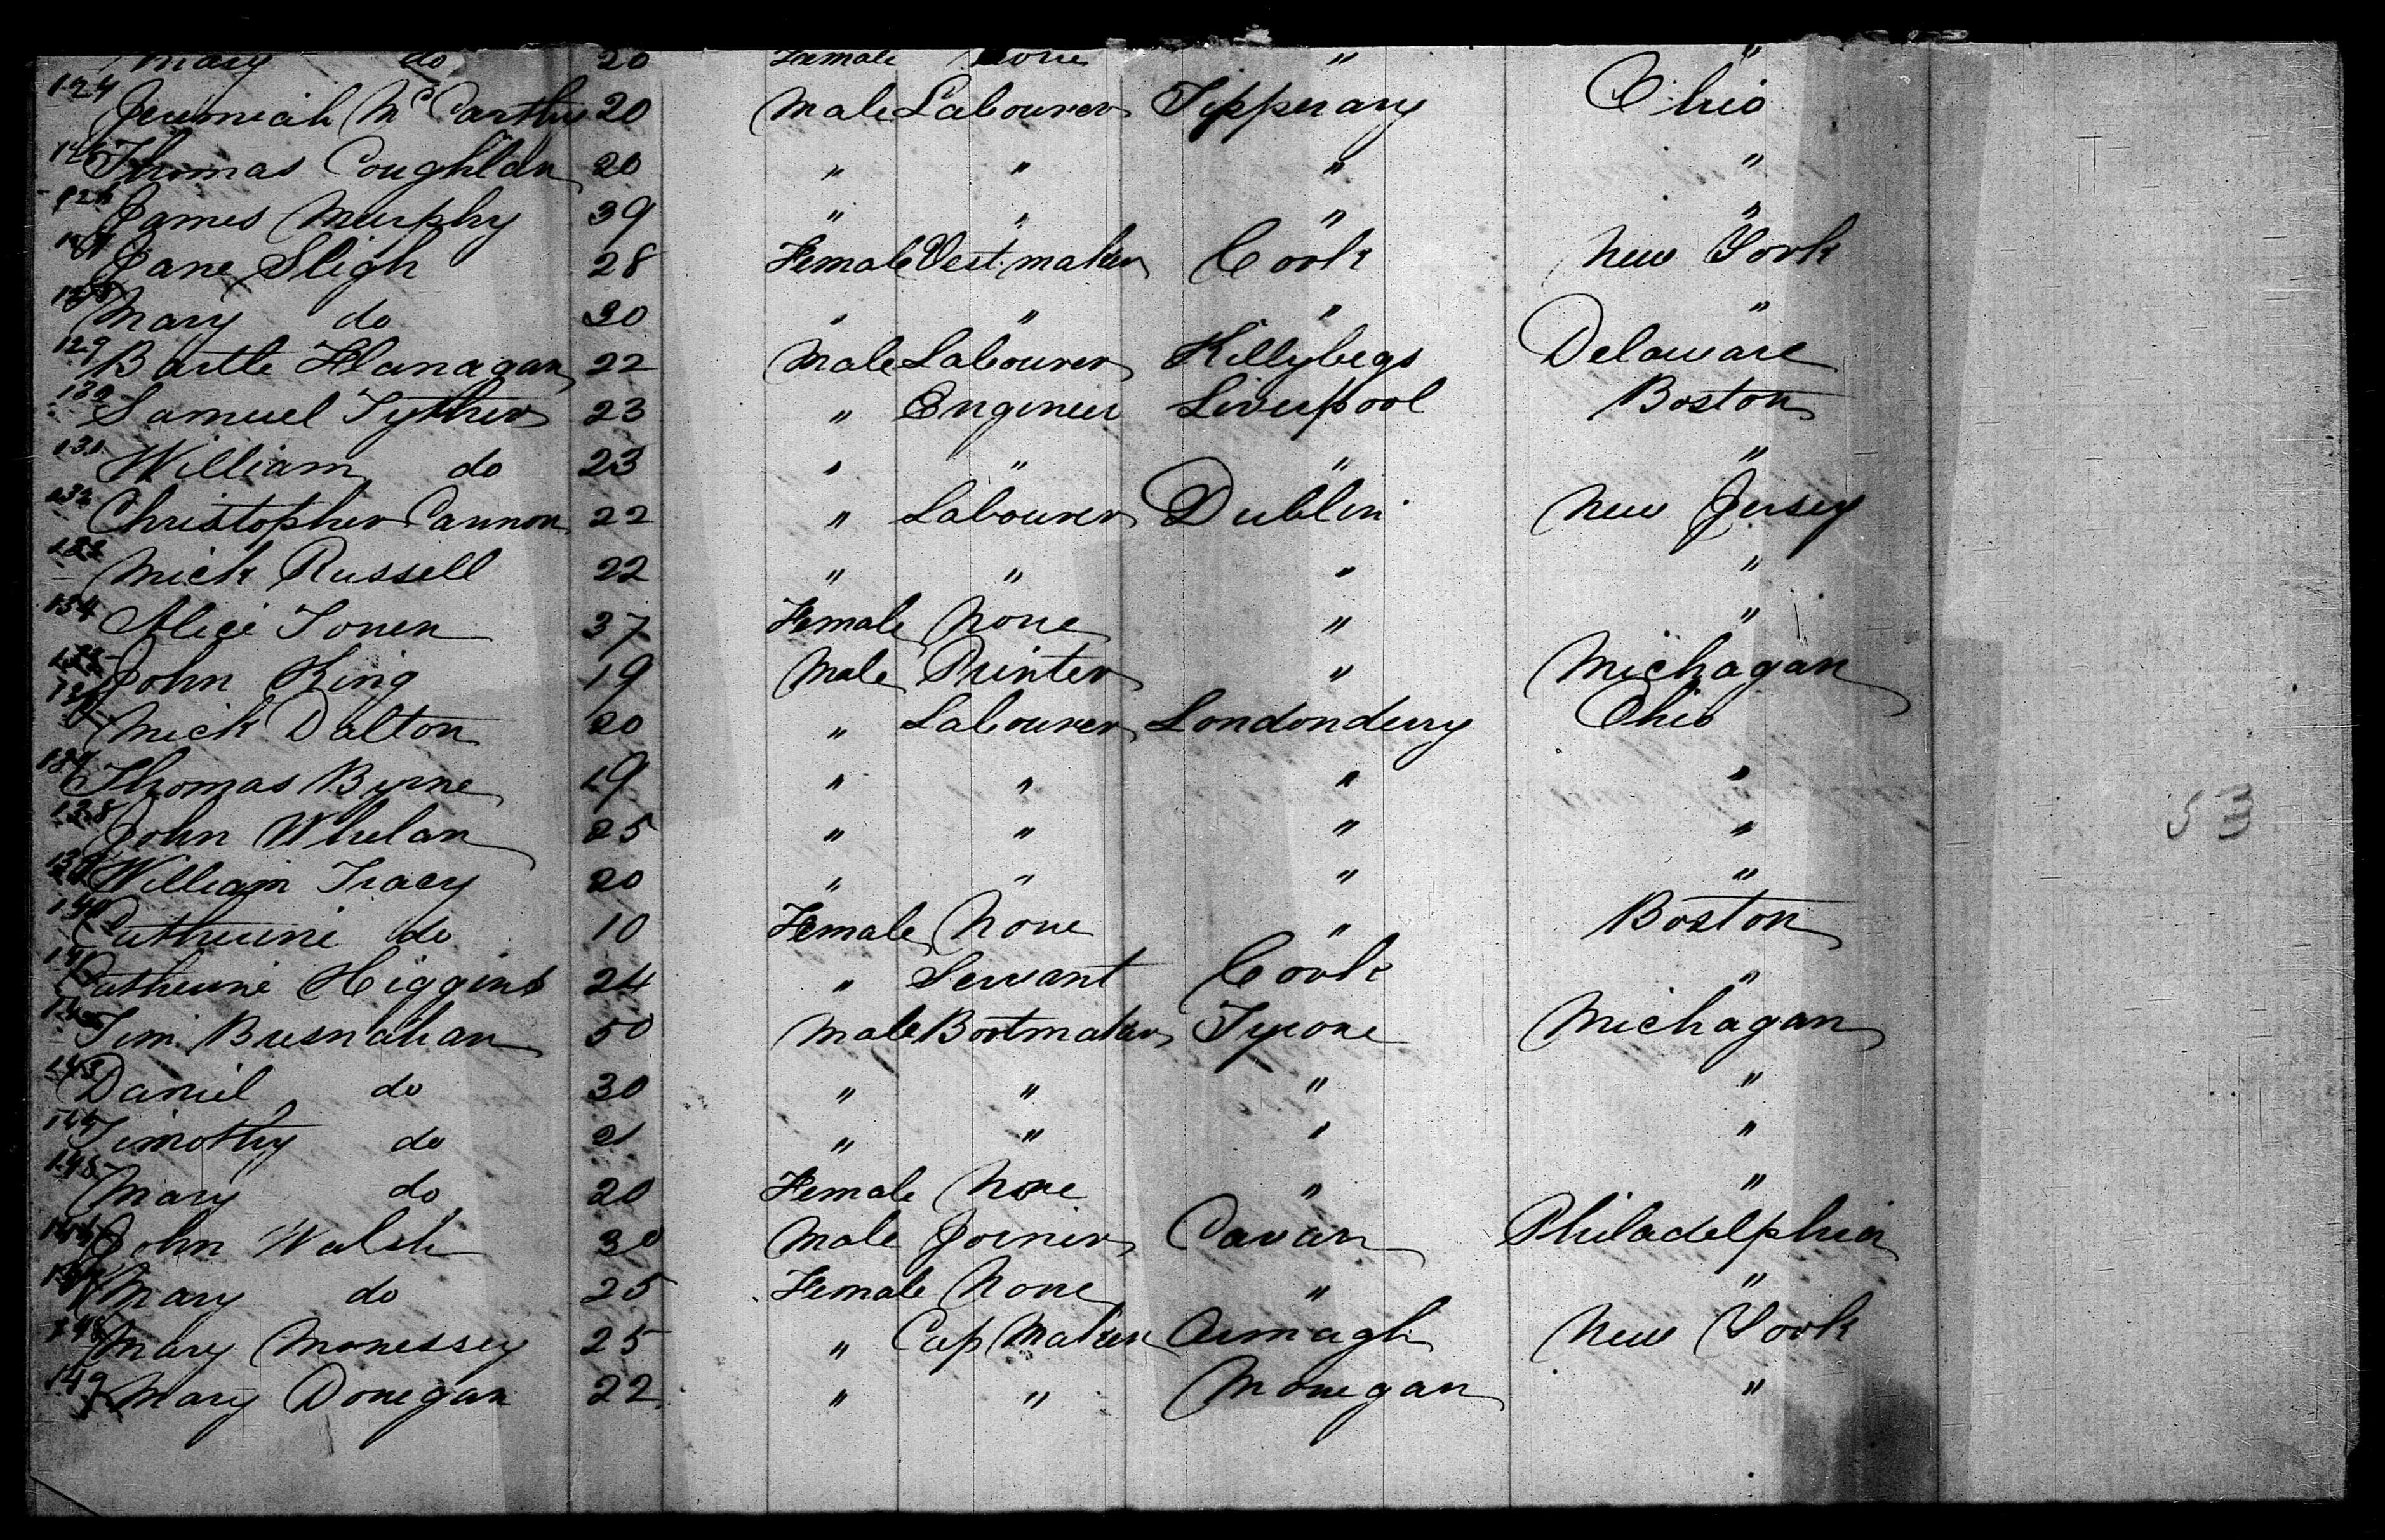 Mary do 20 Female None " "
124 Jeremiah McCarthy 20 Male Labourer Tipperary Ohio
125 Thomas Coughlan 20 " " " "
126 James Murphy 39 " " " "
127 Jane Sligh 28 Female Vest maker Cork New York
128 Mary do 30 " " " "
129 Bartle Flanagan 22 Male Labourer Killybegs Delaware
130 Samuel Tyther 23 " Engineer Liverpool Boston
131 William do 23 " " " "
132 Christopher Cannon 22 " Labourer Dublin New Jersey
133 Mick Russell 22 " " " "
134 Alice Tonen 37 Female None " "
135 John King 19 Male Printer " Michagan
136 Mick Dalton 20 " Labourer Londonderry Ohio
137 Thomas Byrne 19 " " " "
138 John Whelan 25 " " " "
139 William Tracy 20 " " " "
140 Catherine do 10 Female None " Boston
141 Catherine Higgins 24 " Servant Cork "
142 Tim Busnahan 50 Male Bootmaker Tyrone Michagan
143 Daniel do 30 " " " "
144 Timothy do 21 " " " "
145 Mary do 20 Female None " "
146 John Walsh 30 Male Joiner Cavan Philadelphia
147 Mary do 25 Female None " "
148 Mary Monessey 25 " Cap Maker Armagh New York
149 Mary Donegan 22 " " Monegan "
53